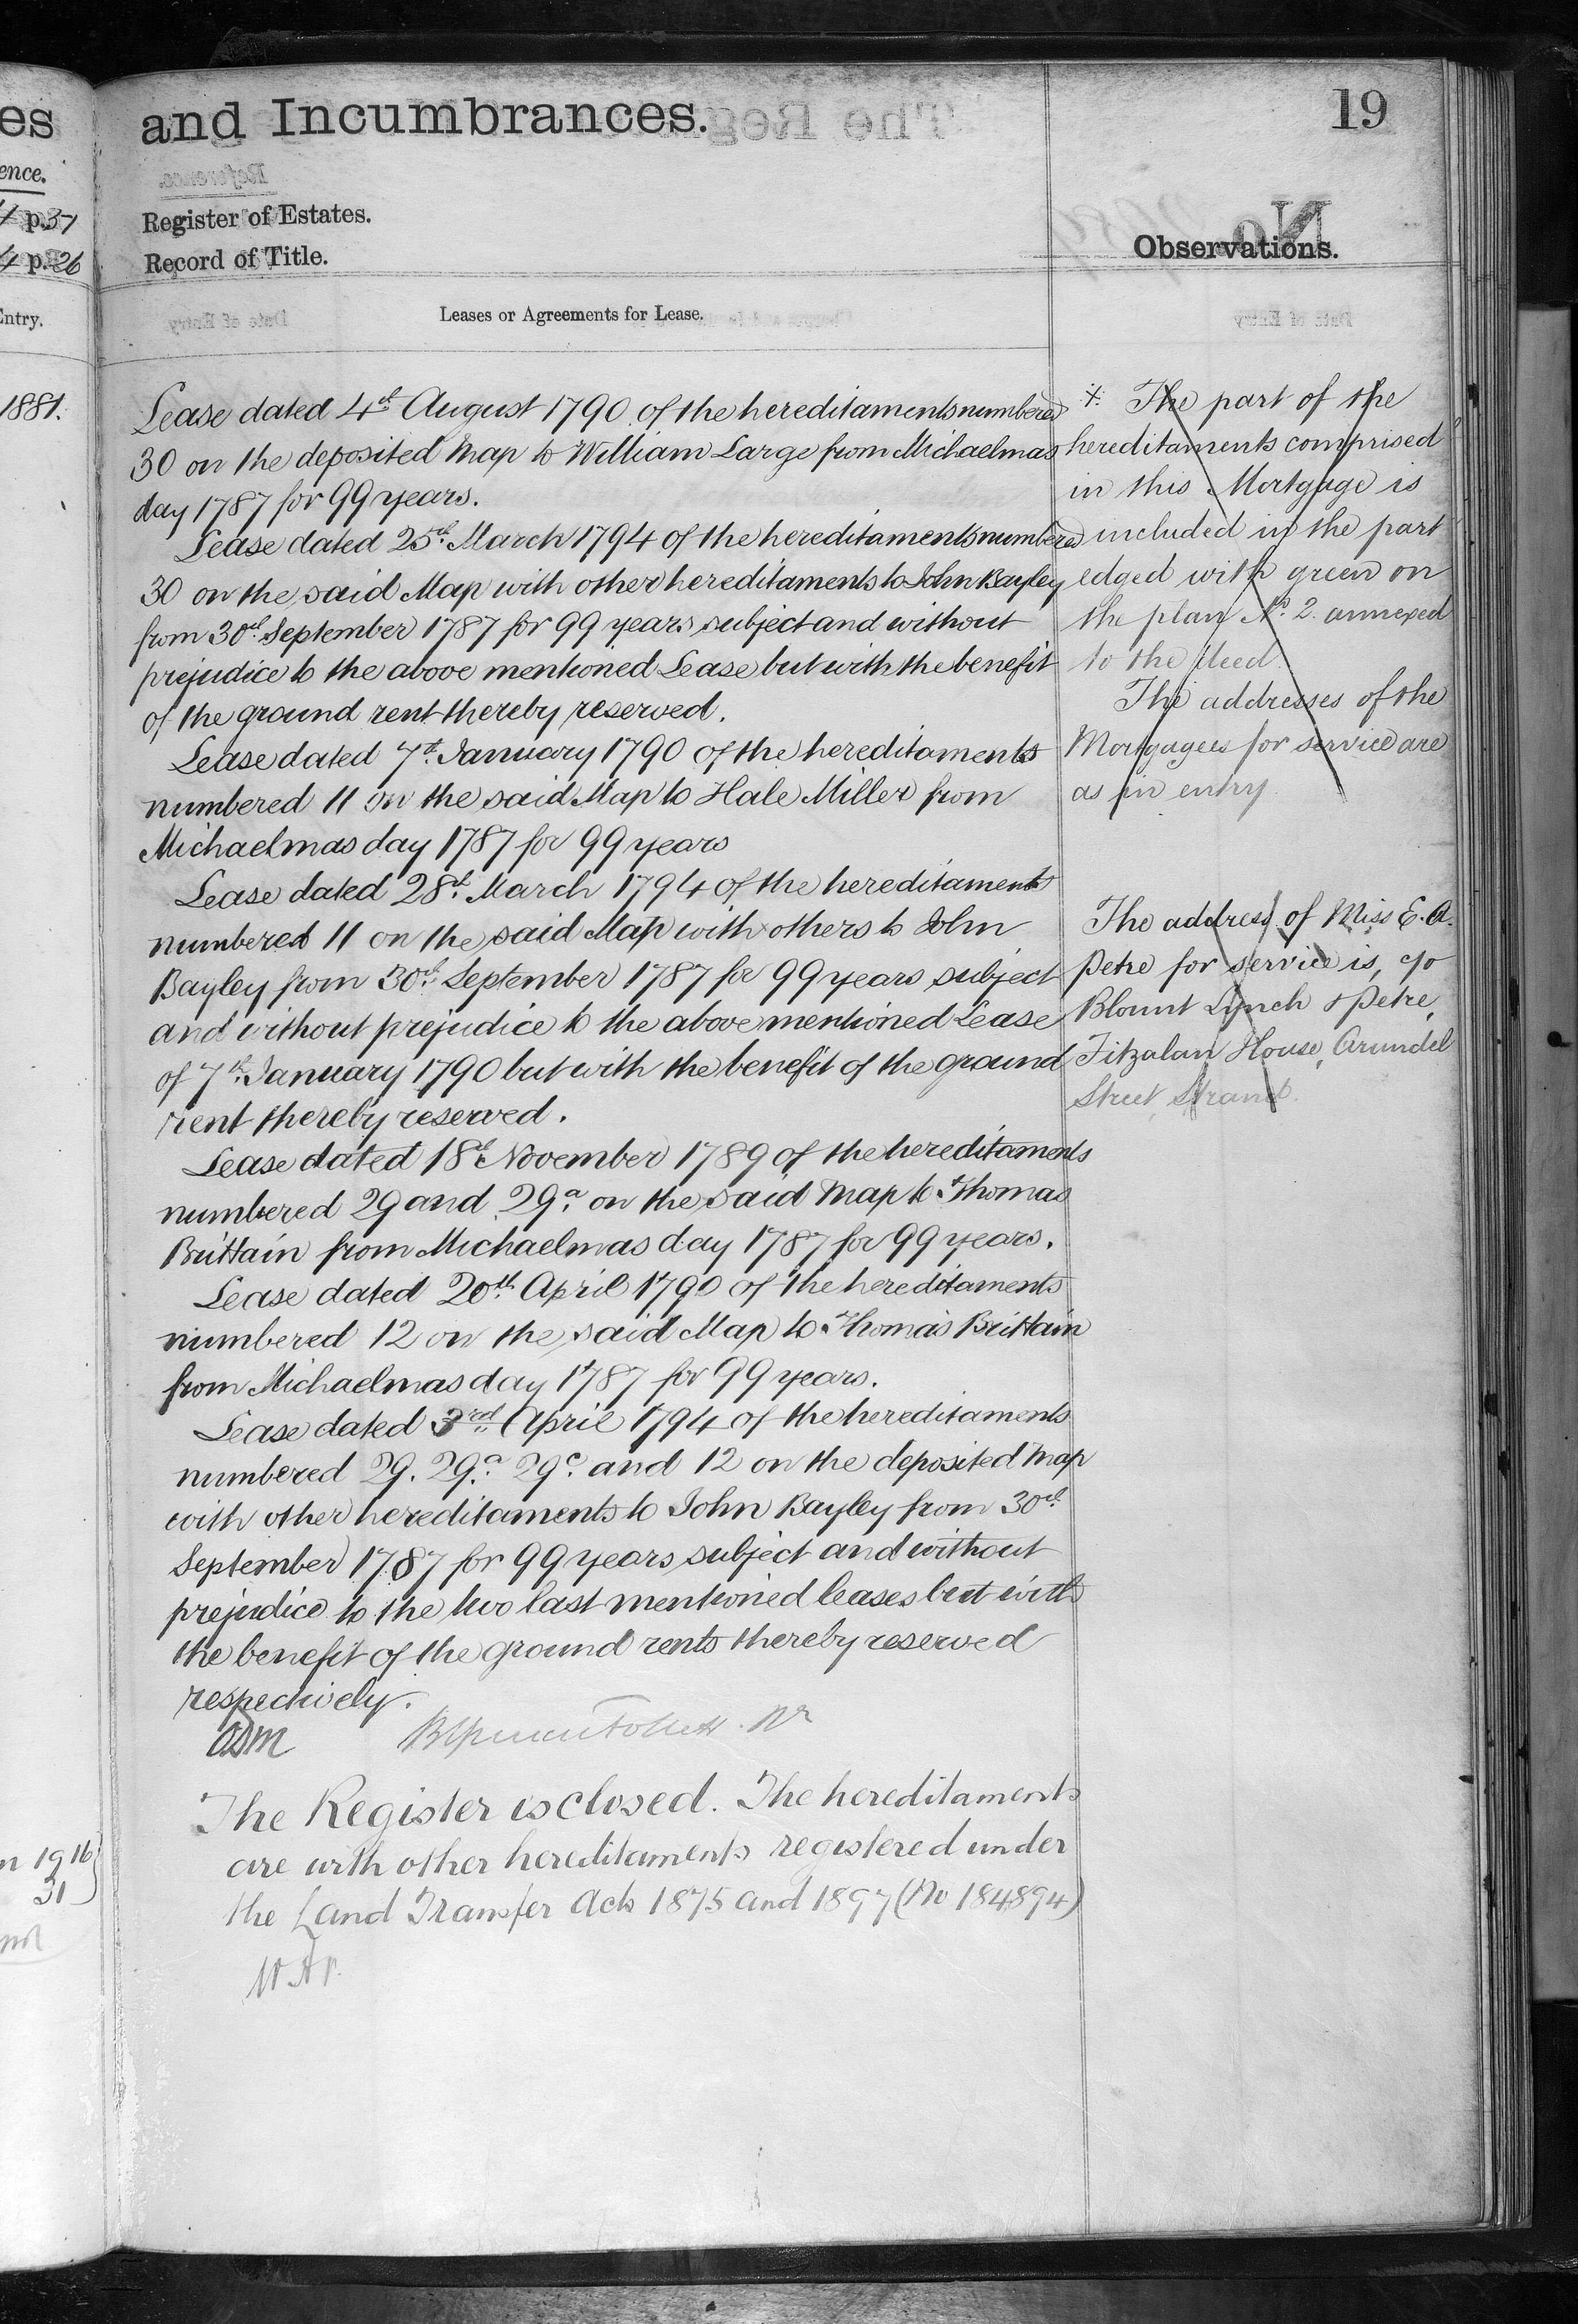 es
ence.
p. 37
p. 26
Entry.
1881.
1916
31
and Incumbrances.
19
Register of Estates.
Record of Title.
Observations.
Leases or Agreements for Lease.
Lease dated 4th August 1790 of the hereditaments numbered
30 on the deposited Map to William Large from Michaelmas
day 1787 for 99 years.
Lease dated 25th March 1794 of the hereditaments numbered
30 on the said Map with other hereditaments to John Bayley
from 30th September 1787 for 99 years subject and without
prejudice to the above mentioned Lease but with the benefit
of the ground rent thereby reserved.
Lease dated 7th January 1790 of the hereditaments
numbered 11 on the said Map to Hale Miller from
Michaelmas day 1787 for 99 years
Lease dated 28th March 1794 of the hereditaments
numbered 11 on the said Map with others to John
Bayley from 30th September 1787 for 99 years subject
and without prejudice to the above mentioned Lease
of 7th January 1790 but with the benefit of the ground
rent thereby reserved.
Lease dated 18th November 1789 of the hereditaments
numbered 29 and 29a on the said Map to Thomas
Brittain from Michaelmas day 1787 for 99 years.
Lease dated 20th April 1790 of the hereditaments
numbered 12 on the said Map to Thomas Brittain
from Michaelmas day 1787 for 99 years.
Lease dated 3rd April 1794 of the hereditaments
numbered 29. 29a 29c and 12 on the deposited Map
with other hereditaments to John Bayley from 30th
September 1787 for 99 years subject and without
prejudice to the two last mentioned leases but with
the benefit of the ground rents thereby reserved
respectively.
The Register is closed. The hereditaments
are with other hereditaments registered under
the Land Transfer Acts 1875 and 1897 (No 184894)
The part of the
hereditaments comprised
in this Mortgage is
included in the part
edged with green on
the plan No. 2. annexed
to the Deed.
The addresses of the
Mortgagees for service are
as in entry.
The address of Miss E. A.
Petre for service is, c/o
Blount Lynch & Petre,
Fitzalan House, Arundel
Street, Strand.